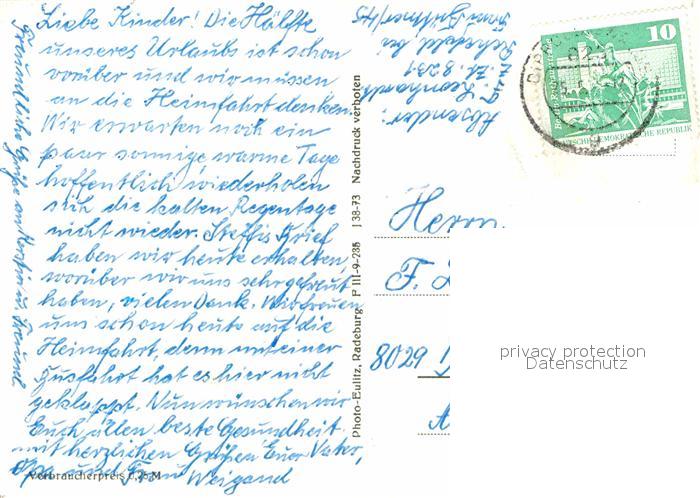 Liebe Kinder! Die Hälfte
unseres Urlaubs ist schon
vorüber und wir müssen
an die Heimfahrt denken.
Wir erwarten noch ein
paar sonnige warme Tage
hoffentlich wiederholen
sich die kalten Regentage
nicht wieder. Steffis Brief
haben wir heute erhalten,
worüber wir uns sehr gefreut
haben, vielen Dank. Wir freuen
uns schon heute auf die
Heimfahrt, denn mit einer
Busfahrt hat es hier nicht
geklappt. Nun wünschen wir
Euch allen beste Gesundheit
mit herzlichen Grüßen Euer Vater,
Opa und Frau Weigand
Freundliche Grüße an
Verbraucherpreis 0,25 M
Photo-Eulitz, Radeburg P III-9-235 J 38-73 Nachdruck verboten
Absender:
Leonhardt
8231
bei
10
DEUTSCHE DEMOKRATISCHE REPUBLIK
Herrn
F.
8029
privacy protection
Datenschutz